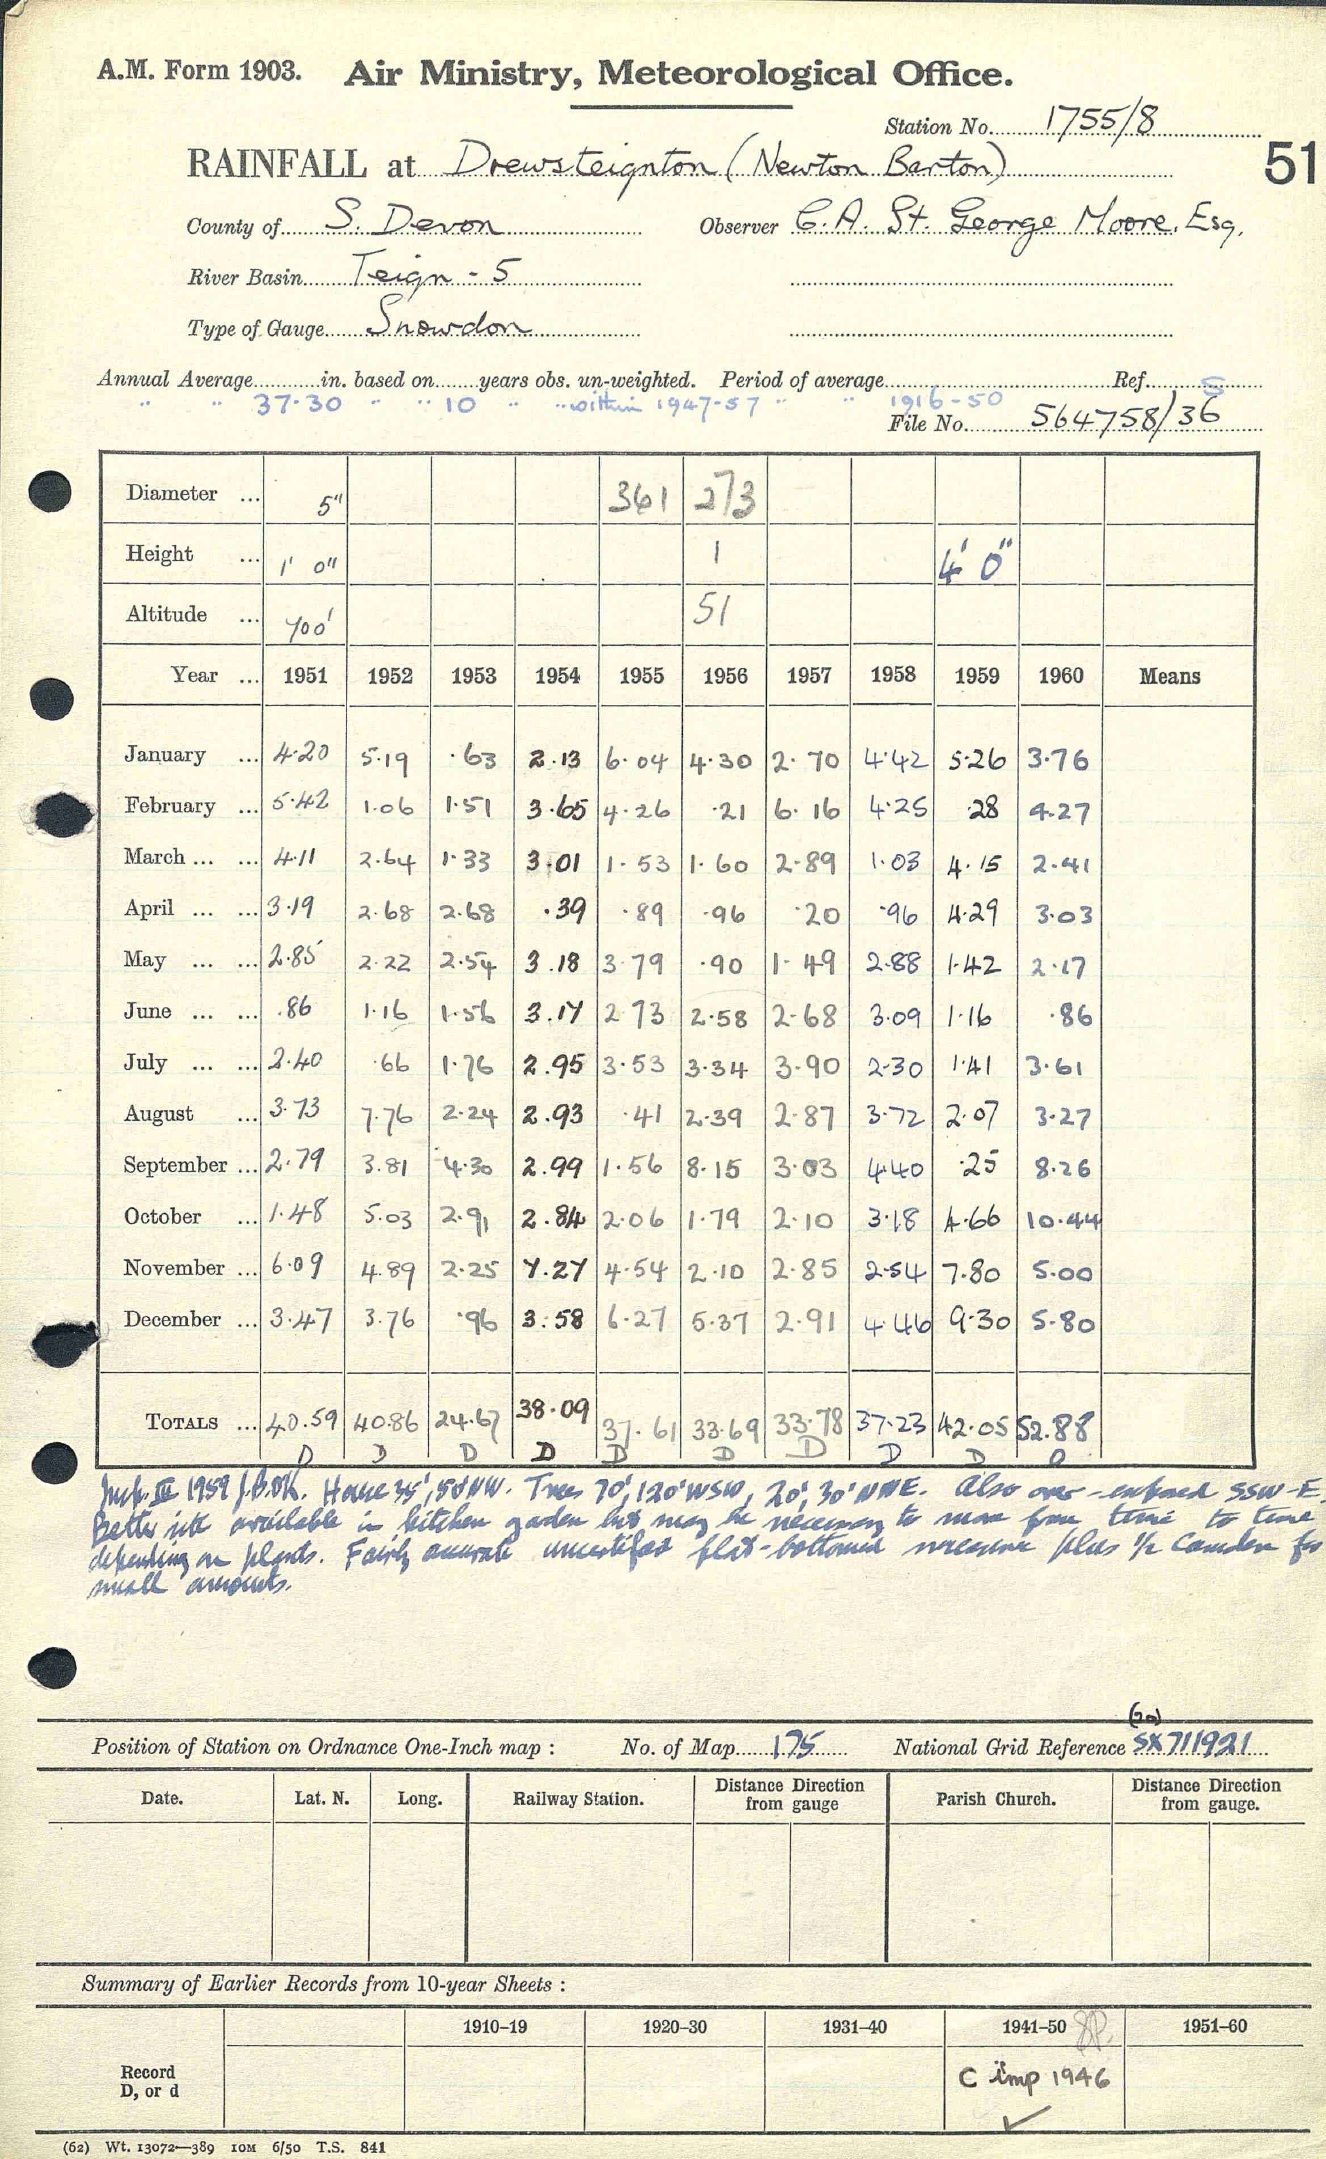 A.M. Form 1903. Air Ministry, Meteorological Office.
Station No. 1755/8
RAINFALL at Drewsteignton (Newton Barton) 51
County of S. Devon Observer C. A. St. George Moore, Esq.
River Basin Teign - 5
Type of Gauge Snowdon
Annual Average in. based on years obs. un-weighted. Period of average Ref. S
" " 37.30 " " 10 " " within 1947-57 " " 1916-50
File No. 564758/36
Diameter ... 5" 361 273
Height ... 1' 0" 1 4' 0"
Altitude ... 700' 51
Year ... 1951 1952 1953 1954 1955 1956 1957 1958 1959 1960 Means
January ... 4.20 5.19 .63 2.13 6.04 4.30 2.70 4.42 5.26 3.76
February ... 5.42 1.06 1.51 3.65 4.26 .21 6.16 4.25 .28 4.27
March ... ... 4.11 2.64 1.33 3.01 1.53 1.60 2.89 1.03 4.15 2.41
April ... ... 3.19 2.68 2.68 .39 .89 .96 .20 .96 4.29 3.03
May ... ... 2.85 2.22 2.54 3.18 3.79 .90 1.49 2.88 1.42 2.17
June ... ... .86 1.16 1.56 3.17 2.73 2.58 2.68 3.09 1.16 .86
July ... ... 2.40 .66 1.76 2.95 3.53 3.34 3.90 2.30 1.41 3.61
August ... 3.73 7.76 2.24 2.93 .41 2.39 2.87 3.72 2.07 3.27
September ... 2.79 3.81 4.30 2.99 1.56 8.15 3.03 4.40 .25 8.26
October ... 1.48 5.03 2.91 2.84 2.06 1.79 2.10 3.18 4.66 10.44
November ... 6.09 4.89 2.25 7.27 4.54 2.10 2.85 2.54 7.80 5.00
December ... 3.47 3.76 .96 3.58 6.27 5.37 2.91 4.46 9.30 5.80
TOTALS ... 40.59 40.86 24.67 38.09 37.61 33.69 33.78 37.23 42.05 52.88
D D D D D D D D D D
Insp. III 1959 House 35', 50' NW. Trees 70', 120' WSW, 20', 30' NNE. Also over-exposed SSW-E.
Better site available in kitchen garden but may be necessary to move from time to time
depending on plants. Fairly accurate uncertified flat-bottomed measure plus 1/2 Camden for
small amounts.
(20)
Position of Station on Ordnance One-Inch map : No. of Map 175 National Grid Reference SX 711921
Date. Lat. N. Long. Railway Station. Distance Direction from gauge Parish Church. Distance Direction from gauge.
Summary of Earlier Records from 10-year Sheets :
1910–19 1920–30 1931–40 1941–50 1951–60
Record D, or d C imp 1946
(62) Wt. 13072—389 10M 6/50 T.S. 841